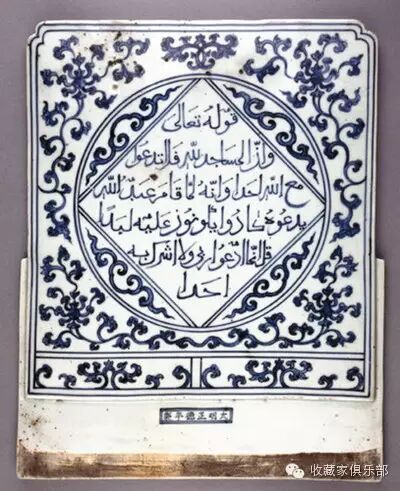 قوله تعالى
وان المساجد لله فلا تدعوا
مع الله احدا وانه لما قام عبد الله
يدعوه كادوا يكونون عليه لبدا
قل انما ادعوا ربي ولا اشرك به
احدا
大明正德年製
收藏家俱乐部